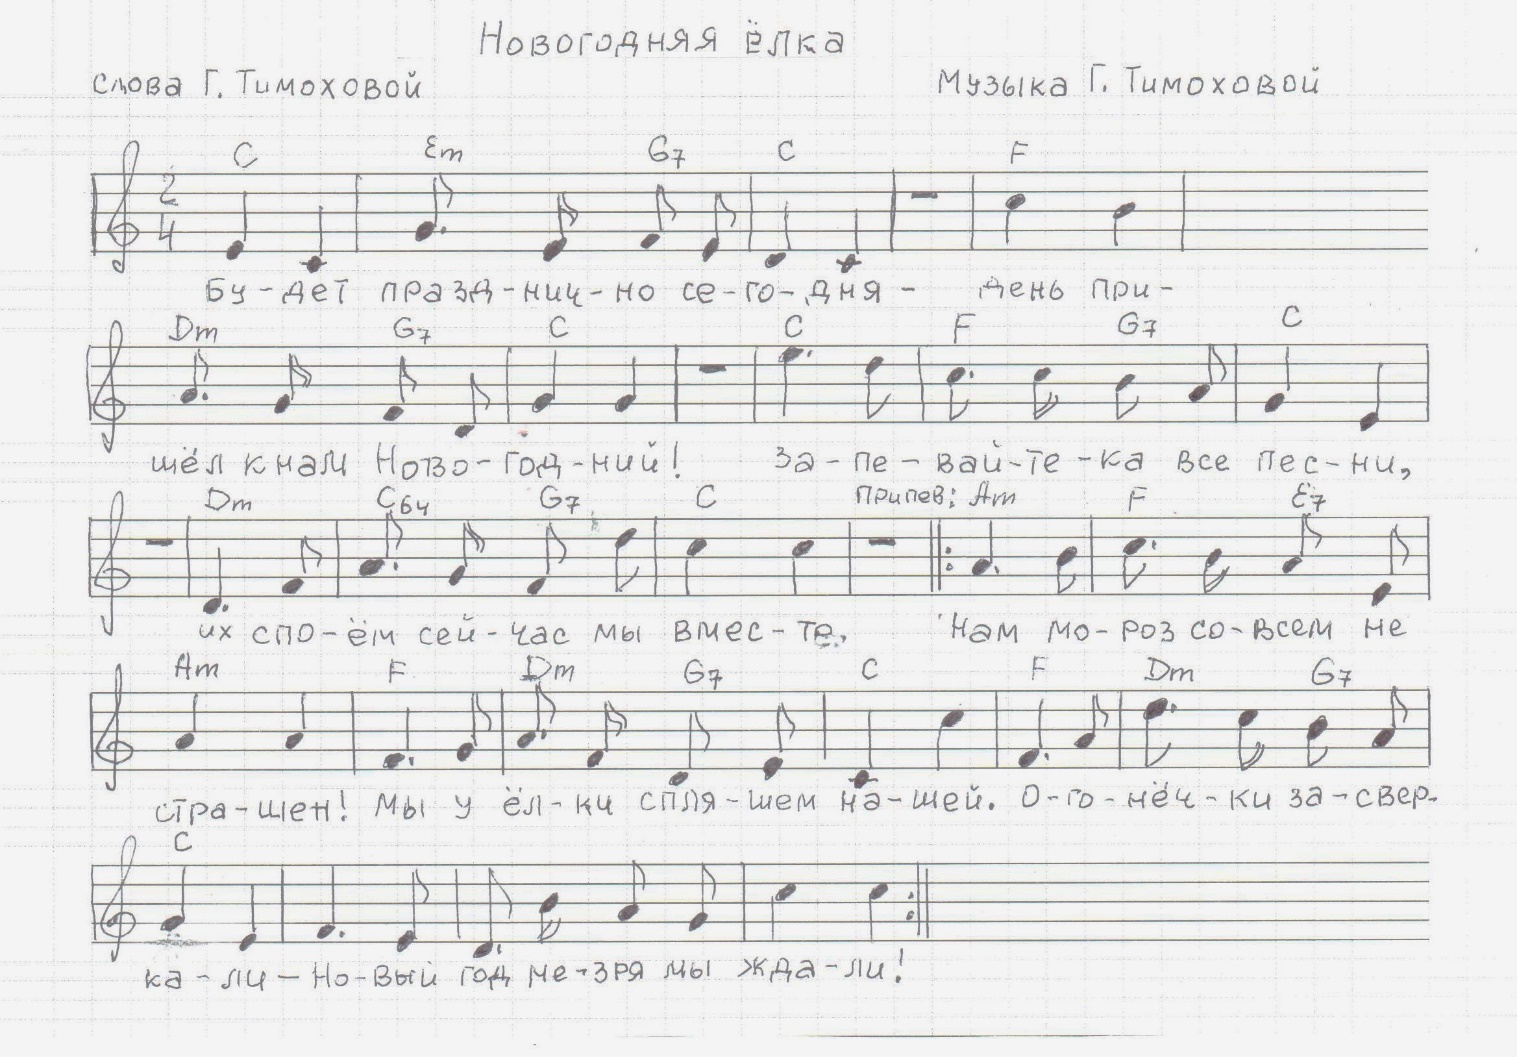 Новогодняя ёлка
Слова Г. Тимоховой Музыка Г. Тимоховой
C Em G7 C F
2
4
Бу-дет празд-нич-но се-го-дня- день при-
Dm G7 C C F G7 C
шёл к нам Ново-год-ний! За-пе-вай-те-ка все пес-ни,
Dm C64 G7 C Припев: Am F E7
их спо-ём сей-час мы вмес-те. Нам мо-роз со-всем не
Am F Dm G7 C F Dm G7
стра-шен! Мы у ёл-ки спля-шем на-шей. О-го-нёч-ки за-свер-
C
ка-ли-Но-вый год не-зря мы жда-ли!